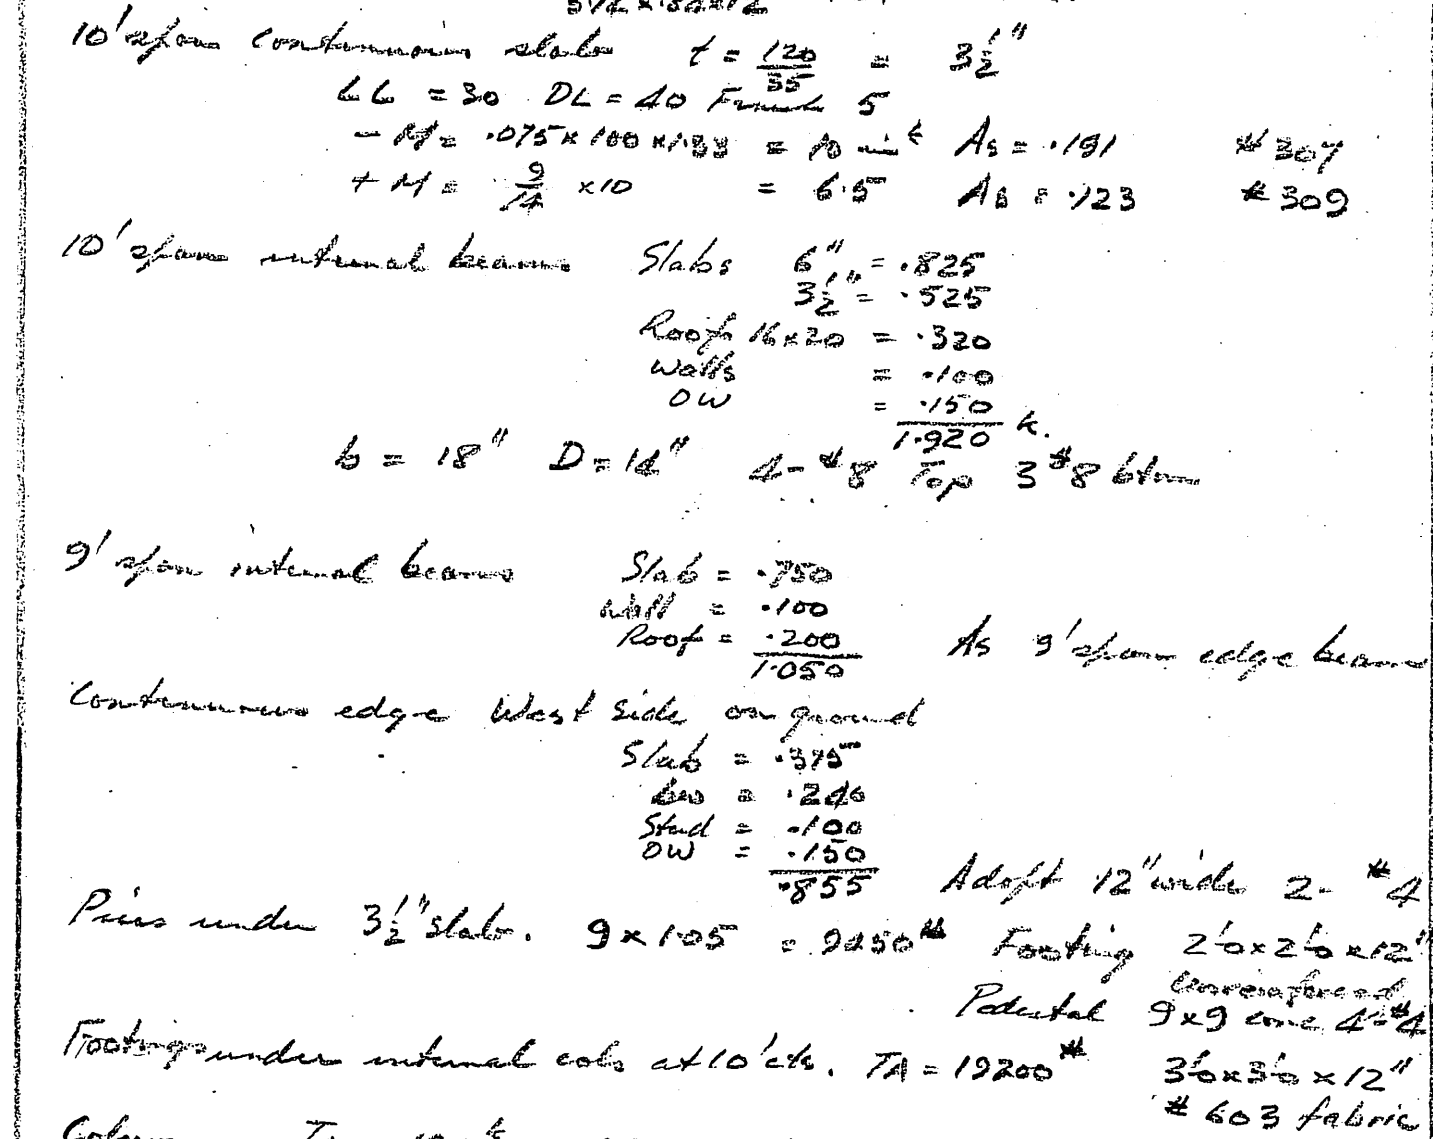 10' span continuous slab t = 120/35 = 3½"
LL = 30 DL = 40 Finish 5
- M = .075 x 100 x 1.33 = 10 in k As = .191 #307
+ M = 9/14 x 10 = 6.5 As = .123 #309
10' span internal beams Slabs 6" = .825
3½" = .525
Roof 16x20 = .320
Walls = .100
OW = .150
1.920 k.
b = 18" D = 14" 4-#8 Top 3 #8 btm
9' span internal beams Slab = .750
Wall = .100
Roof = .200
1.050 As 9' span edge beams
Continuous edge West Side on ground
Slab = .375
= .240
Stud = .100
OW = .150
.855 Adopt 12" wide 2-#4
Piers under 3½" slab. 9 x 1.05 = 9450# Footing 2'0x2'0x12"
Unreinforced
Pedestal 9x9 conc 4-#4
Footings under internal cols at 10' cts. TA = 19200# 3'0x3'0x12"
#603 fabric